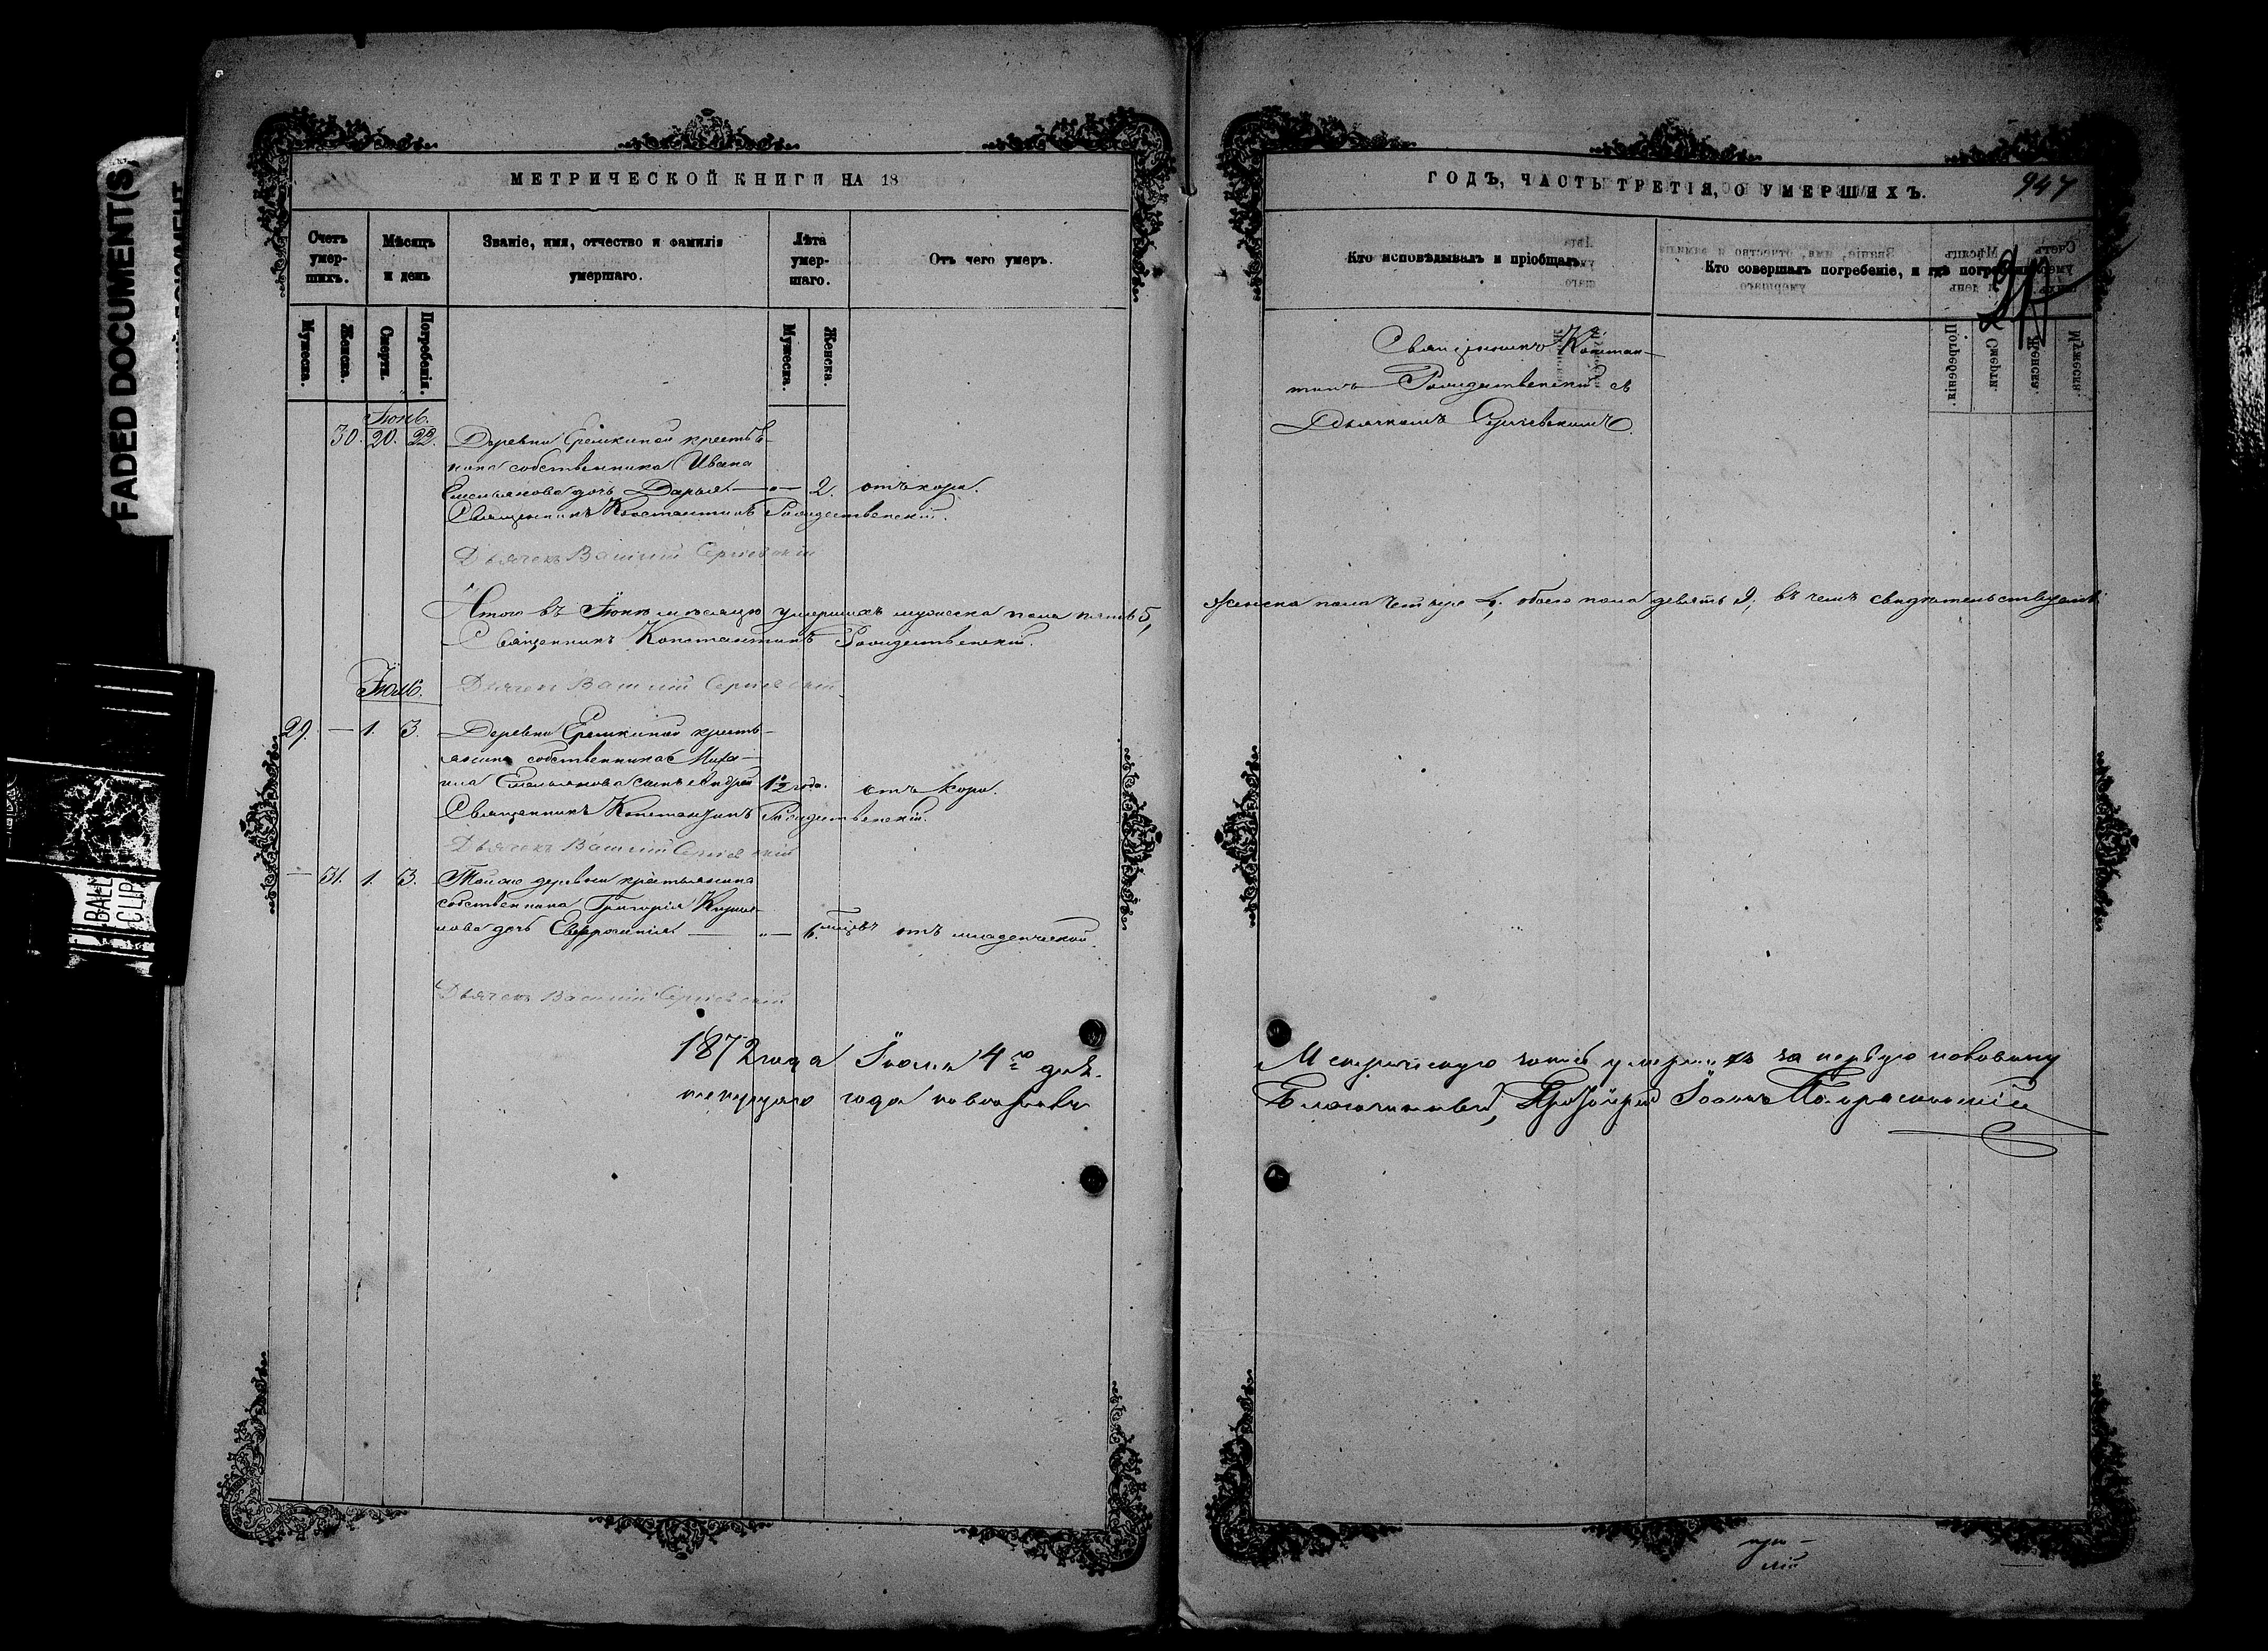 FADED DOCUMENT(S)
МЕТРИЧЕСКОЙ КНИГИ НА 18
Счетъ умер-шихъ.
Мѣсяцъ и день
Званіе, имя, отчество и фамилія умершаго.
Лѣта умер-шаго.
Отъ чего умеръ.
Мужеска.
Женска.
Смерти.
Погребенія.
Мужеска.
Женска.
Іюнь.
30. 20. 22. Деревни Ерешкиной крестья-
нина собственника Ивана
Емельянова дочь Дарья — „ — 2. отъ кори.
Священникъ Константинъ Рождественскій.
Дьячекъ Василій Сергіевскій
Итого въ Іюнѣ мѣсяцѣ умершихъ мужеска пола пять 5,
Священникъ Константинъ Рождественскій.
Іюль.
Дьячекъ Василій Сергіевскій
29. — 1. 3. Деревни Ерешкиной кресть-
янина собственника Миха-
ила Емельянова сынъ Андрей 1½ года. отъ кори.
Священникъ Константинъ Рождественскій.
Дьячекъ Василій Сергіевскій
— 31. 1. 3. Той же деревни крестьянина
собственника Григорія Кирил-
лова дочь Евфросинія — „ — 6. мѣсяцевъ отъ младенческой.
Дьячекъ Василій Сергіевскій
1872 года Іюля 4го дня.
текущаго года
BALL CLIP
ГОДЪ, ЧАСТЬ ТРЕТІЯ, О УМЕРШИХЪ.
947
Кто исповѣдывалъ и пріобщалъ.
Кто совершалъ погребеніе, и гдѣ погребены.
Священникъ Констан-
тинъ Рождественскій съ
Дьячкомъ Сергіевскимъ.
женска пола четыре 4, обоего пола девять 9, въ чемъ свидѣтельствуемъ:
Метрическую запись умершихъ за первую половину
Благочинный, Протоіерей Іоаннъ